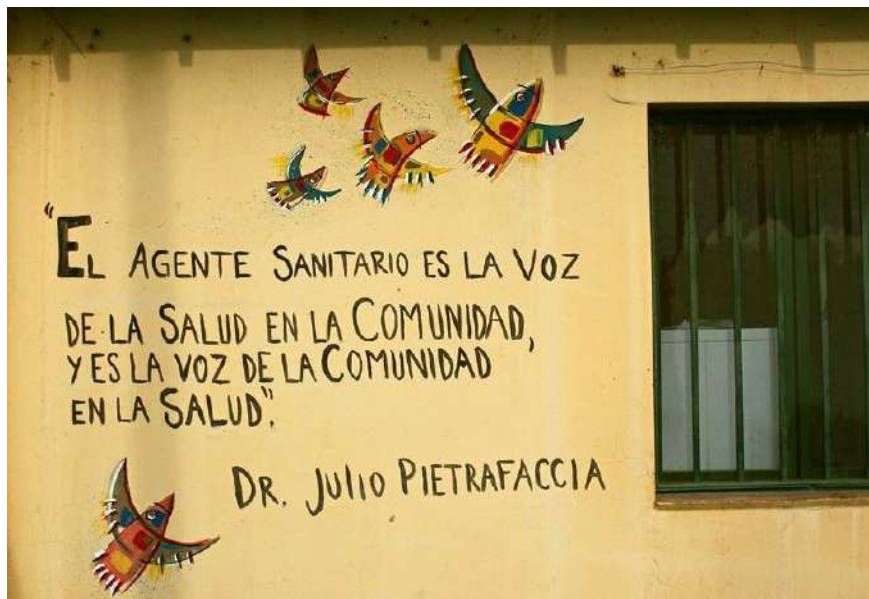 "EL AGENTE SANITARIO ES LA VOZ
DE LA SALUD EN LA COMUNIDAD,
Y ES LA VOZ DE LA COMUNIDAD
EN LA SALUD".
DR. JULIO PIETRAFACCIA